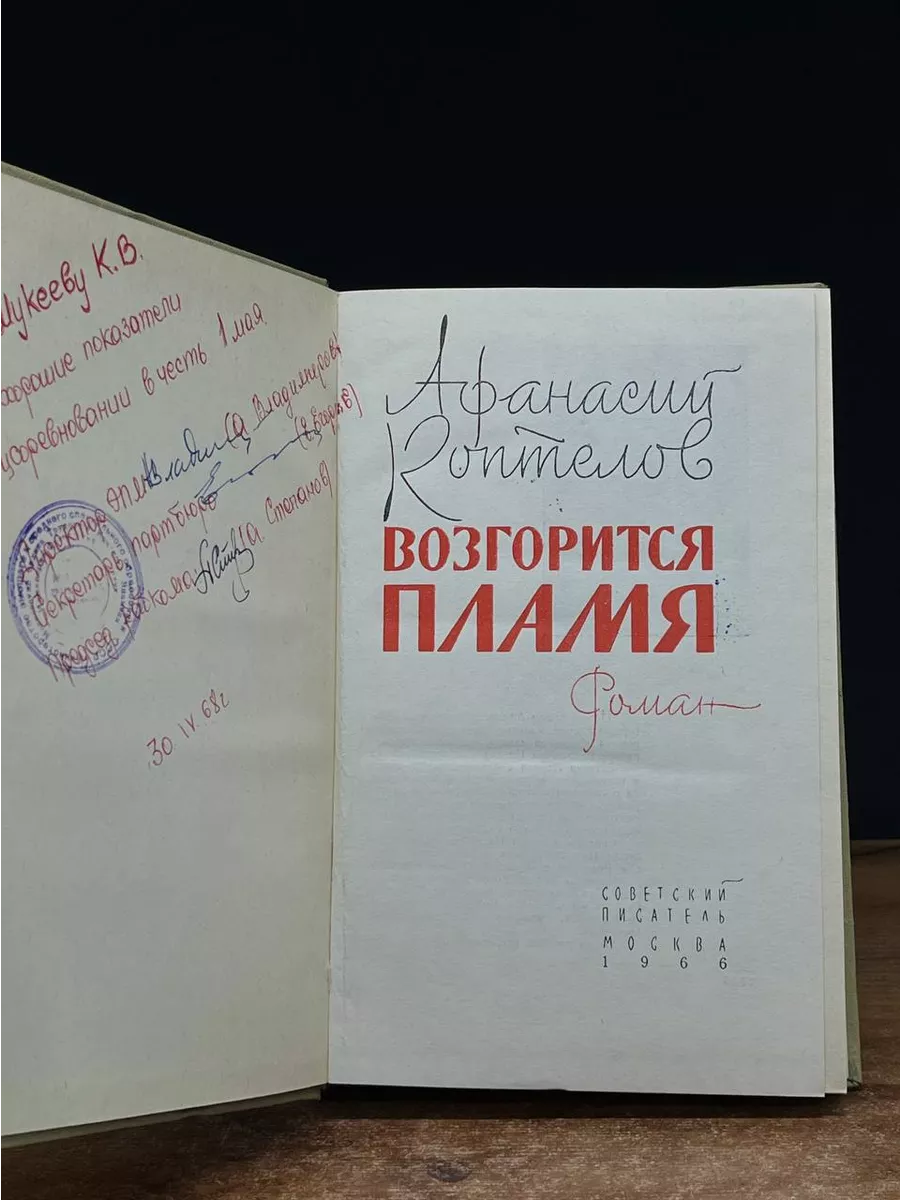 Мукееву К.В.
хорошие показатели
соревновании в честь 1 мая.
Директор (Владимиров)
Секретарь партбюро
Председ. (Степанов)
30 IV. 68г
Афанасий
Коптелов
ВОЗГОРИТСЯ
ПЛАМЯ
Роман
СОВЕТСКИЙ
ПИСАТЕЛЬ
МОСКВА
1966